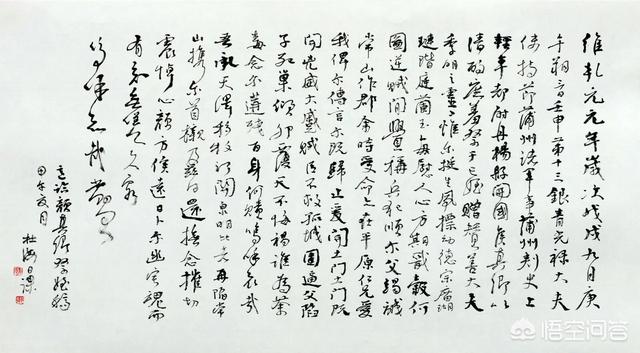 維乾元元年歲次戊戌九月庚
午朔三日壬申第十三銀青光祿大夫
使持節蒲州諸軍事蒲州刺史上
輕車都尉丹楊縣開國侯真卿以
清酌庶羞祭于亡姪贈贊善大夫
季明之靈惟爾挺生夙標幼德宗廟瑚
璉階庭蘭玉每慰人心方期戩穀何
圖逆賊間釁稱兵犯順爾父竭誠
常山作郡余時受命亦在平原仁兄愛
我俾爾傳言爾既歸止爰開土門土門既
開兇威大蹙賊臣不救孤城圍逼父陷
子死巢傾卵覆天不悔禍誰為荼
毒念爾遘殘百身何贖嗚乎哀哉
吾承天澤移牧河關泉明比者再陷常
山攜爾首櫬及茲同還撫念摧切
震悼心顏方俟遠日卜爾幽宅魂而
有知無嗟久客
嗚乎哀哉尚饗
意臨顏真卿祭姪稿
甲午夏月
杜海
悟空问答